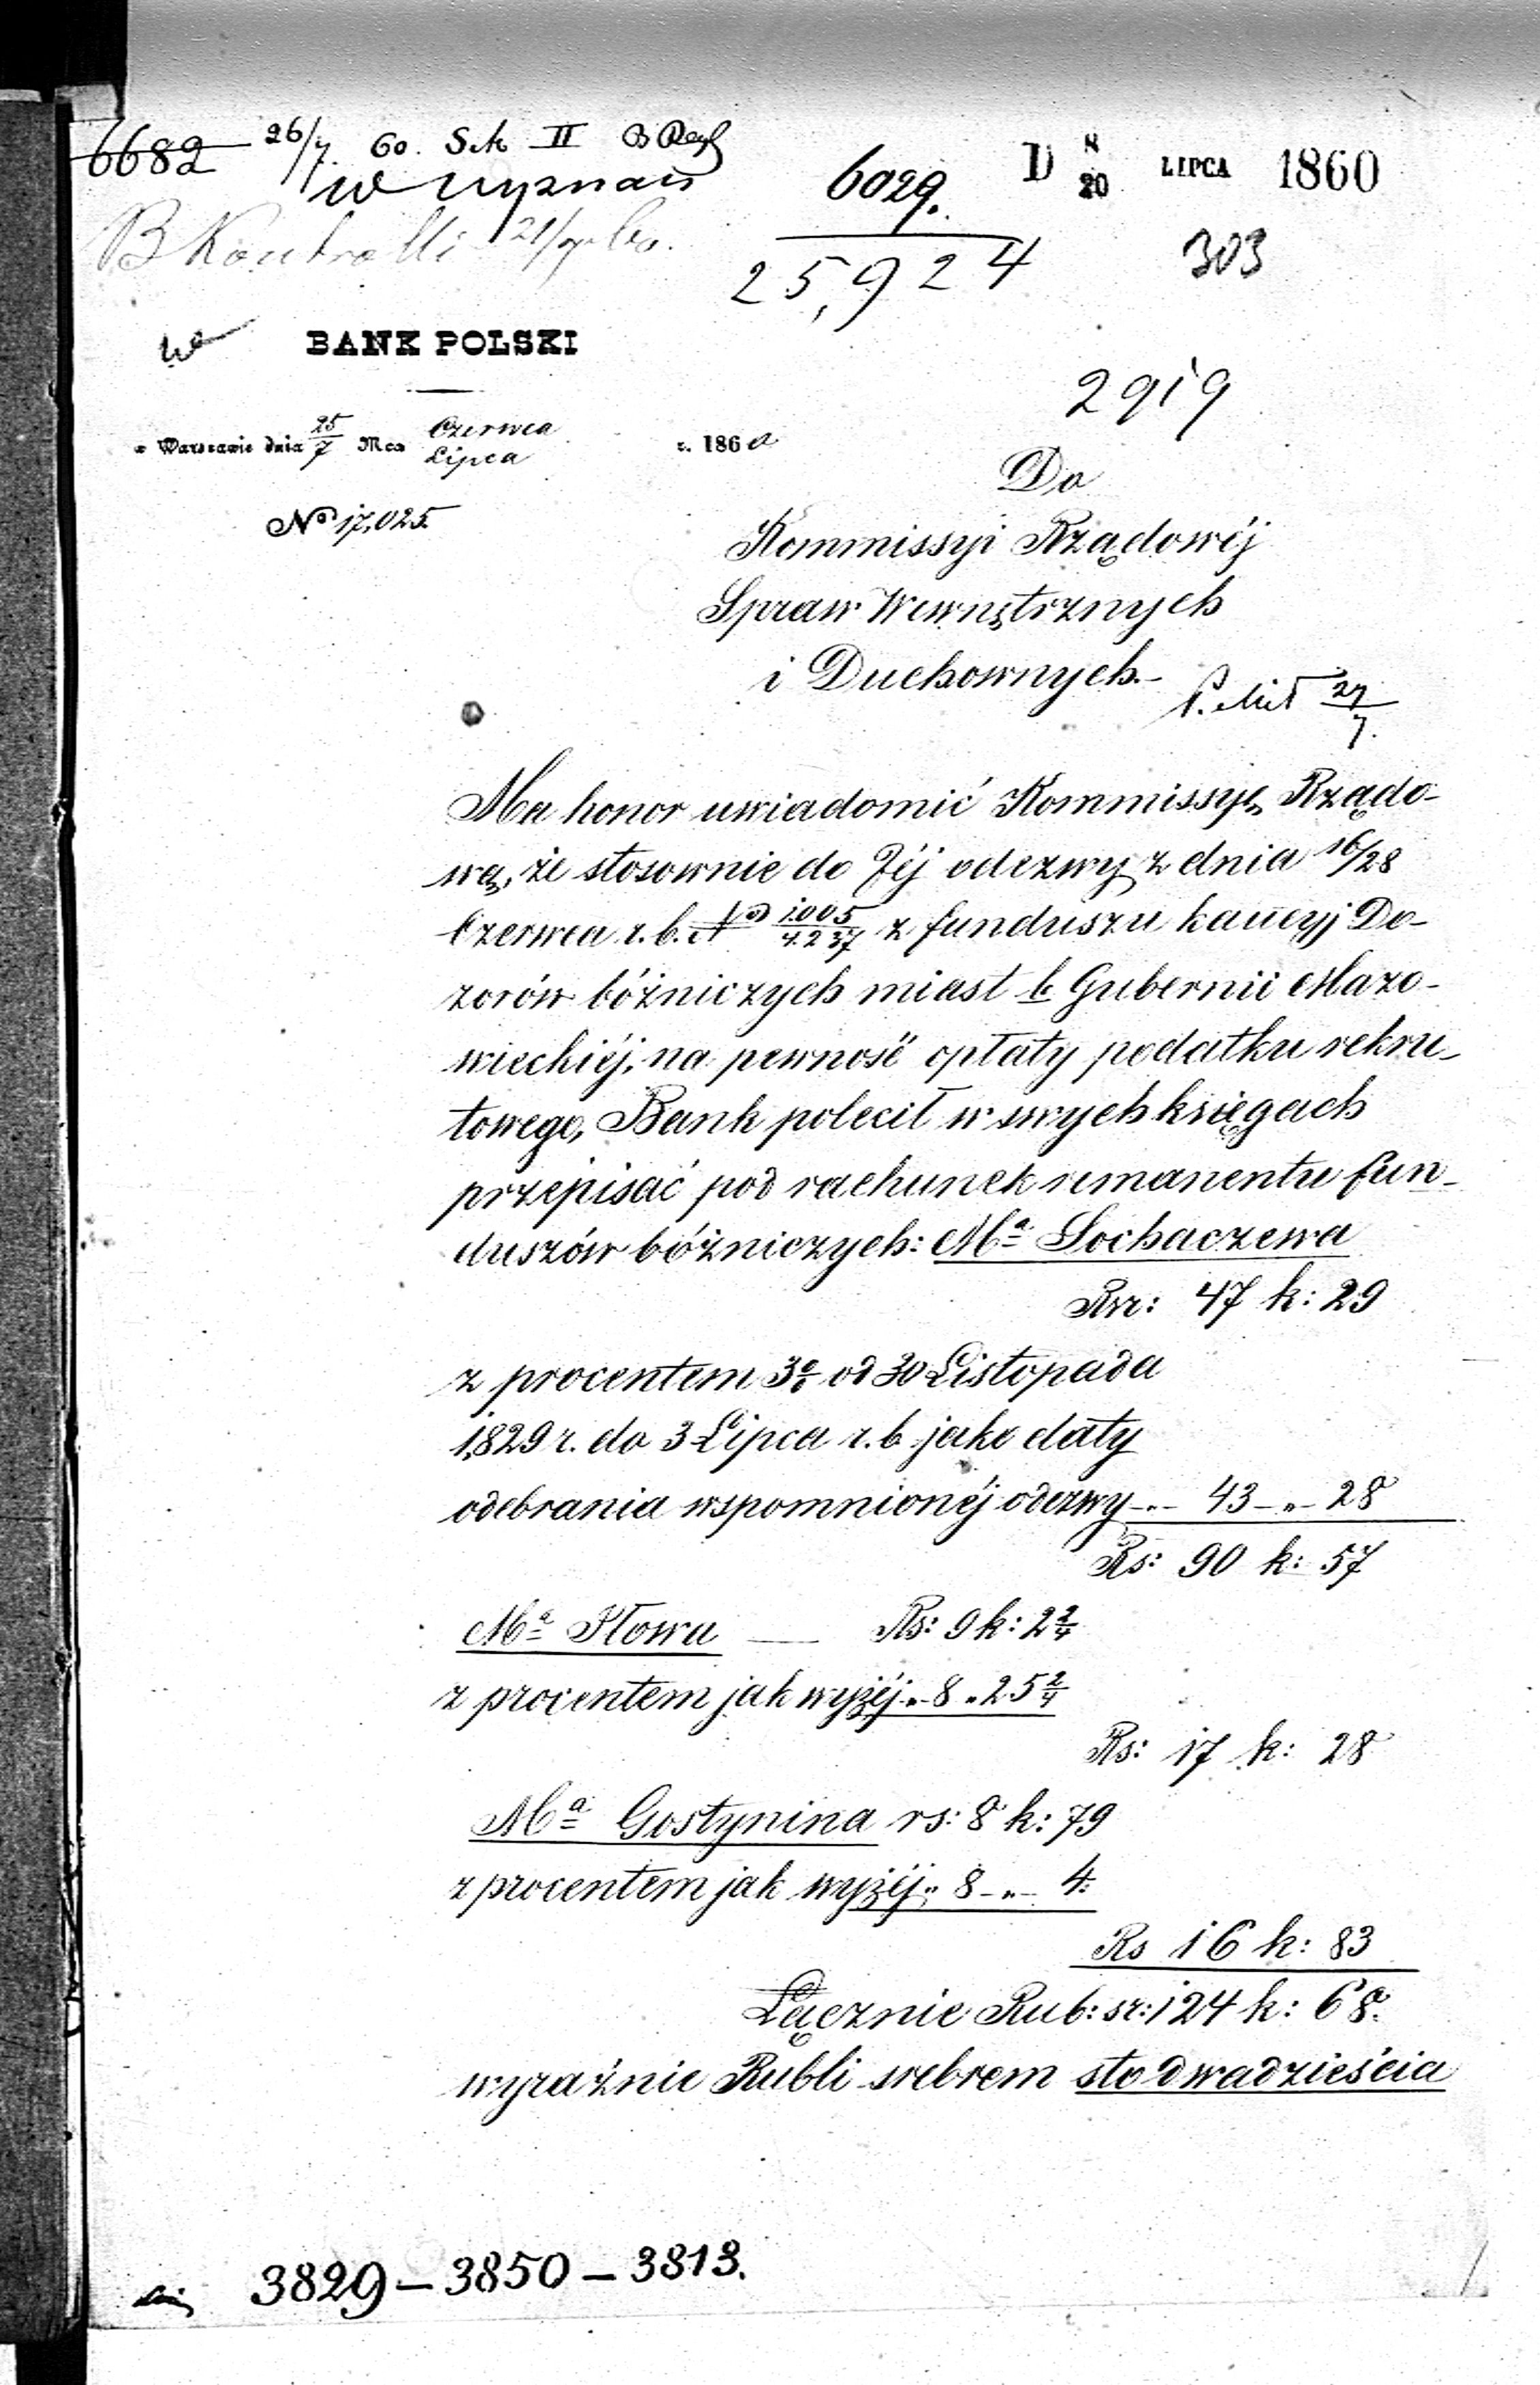 6682 26/7. 60. Sek II
W Wyznań
6029.
D 8/20 LIPCA 1860
B Kontrolli 21/7 60.
25,924
303
BANK POLSKI
2919
w Warszawie dnia 25/7 Mca Czerwca Lipca r. 1860
No 17,025.
Do
Kommissyi Rządowéj
Spraw Wewnętrznych
i Duchownych.-
27/7.
Ma honor uwiadomić Kommissyę Rządo-
wą, że stosownie do Jéj odezwy z dnia 16/28
Czerwca r. b. No 1005/4237 z funduszu kaucyj Do-
zorów bóżniczych miast b. Gubernii Mazo-
wieckiéj, na pewność opłaty podatku rekru-
towego, Bank polecił w swych księgach
przepisać pod rachunek remanentu fun-
duszów bóżniczych: Ma Sochaczewa
Rsr: 47 k: 29
z procentem 3% od 30 Listopada
1829 r. do 3 Lipca r. b. jako daty
odebrania wspomnionéj odezwy -"- 43 -"- 28
Rs: 90 k: 57
Ma Iłowa — Rs: 9 k: 2 2/4
z procentem jak wyżéj " 8 " 25 2/4
Rs: 17 k: 28
Ma Gostynina rs: 8 k: 79
z procentem jak wyżéj " 8 -"- 4.
Rs 16 k: 83
Łącznie Rub: sr: 124 k: 68.
wyraźnie Rubli srebrem sto dwadzieścia
3829 - 3850 - 3813.